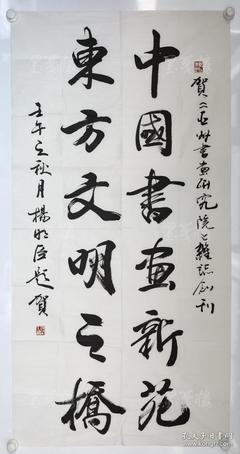 賀《亞州書画研究院》雜誌創刊
中國書畫新苑
東方文明之橋
壬午之秋月楊明臣題賀